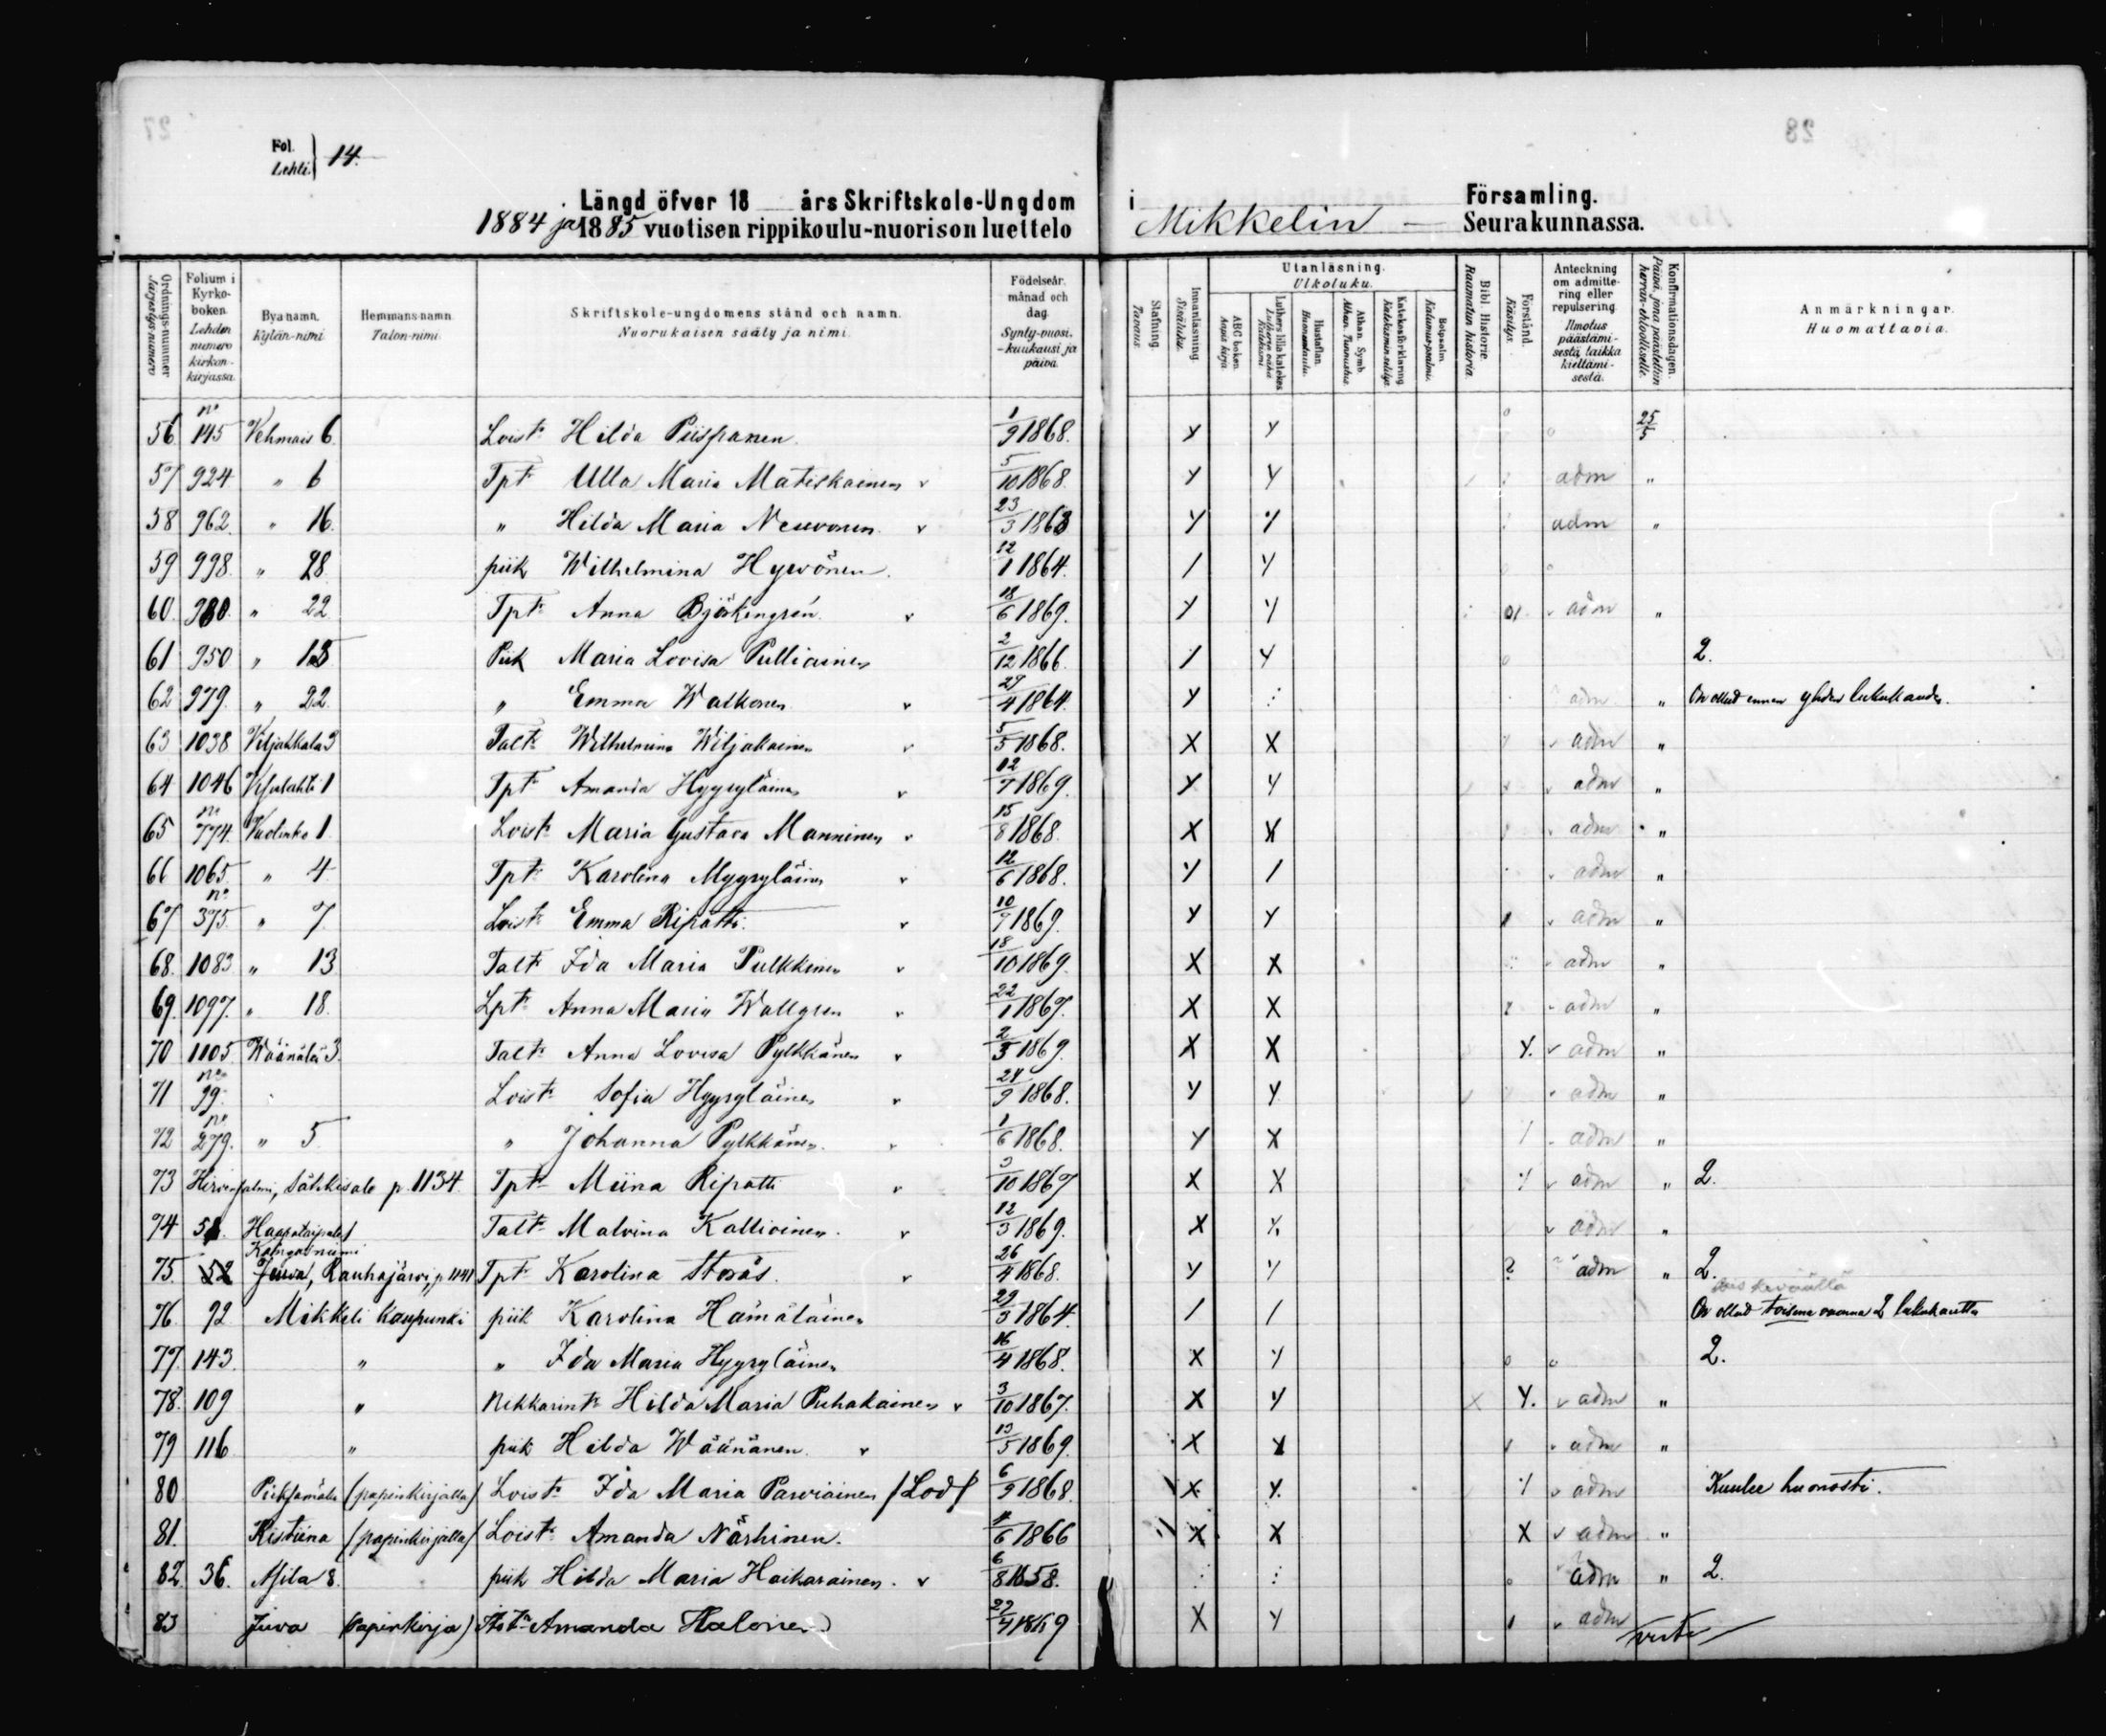 27
28
Fol.
Lehti. } 14.
Längd öfver 18 års Skriftskole-Ungdom i Församling.
1884 ja 1885 vuotisen rippikoulu-nuorison luettelo Mikkelin Seurakunnassa.
Ordnings-nummer Järjestys-numero | Folium i Kyrko-boken. Lehden numero kirkon-kirjassa. | Bya namn. Kylän-nimi | Hemmans-namn. Talon-nimi. | Skriftskole-ungdomens stånd och namn. Nuorukaisen sääty ja nimi. | Födelseår, månad och dag. Synty-vuosi, -kuukausi ja päivä. | Stafning. Tavaus. | Innanläsning. Sisäluku. | Utanläsning. Ulkoluku. | ABC boken. Aapis kirja. | Luthers lilla katekes Lutherus vähä Katekismi. | Hustaflan. Huoneentaulu. | Athan. Symb. Athan. Tunnustus. | Katekesförklaring Katekismin selitys. | Botpsalm. Katumus-psalmi. | Bibl. Historie. Raamatun historia. | Förstånd. Käsitys. | Anteckning om admittering eller repulsering. Ilmotus päästämisestä taikka kieltämisestä. | Konfirmationsdagen. Päivä, jona päästettiin herran-ehtoolliselle. | Anmärkningar. Huomattavia.
56. no 145 Vehmais 6. Loist. Hilda Piispanen. 1/9 1868. y y 25/5
57 924 " 6 Tpt. Ulla Maria Matiskainen v 5/10 1868. y y adm "
58 962. " 16. " Hilda Maria Neuvonen. v 23/3 1868 y y adm "
59 998. " 28 piik Wilhelmina Hyvönen. 12/1 1864. / y
60. 980. " 22 Tpt. Anna Björkengrén. v 18/6 1869. y y v adm "
61 950 " 13 Piik Maria Lovisa Pulliainen 2/12 1866. / y 2.
62 979. " 22. " Emma Walkonen v 29/4 1864. y : adm " On ollut ennen yhden lukukauden.
63 1038 Viljakkala 3 Talt. Wilhelmina Wiljakainen v 5/5 1868. X X v adm "
64 1046 1 Tpt. Amanda Hyyryläinen v 12/7 1869. y y v adm "
65 no 774. Vuolinko 1. Loist. Maria Gustava Manninen v 15/8 1868 X X v adm "
66 1065. " 4. Tpt. Karolina Myyryläinen v 12/6 1868. y / v adm "
67 no 375. " 7. Loist. Emma Ripatti. v 10/7 1869. y y v adm "
68. 1083 " 13 Talt. Ida Maria Pulkkinen v 18/10 1869. X X v adm "
69. 1097. " 18. Lpt. Anna Maria Wallgren v 22/1 1867. X X v adm "
70 1105 Wäänälä 3. Talt. Anna Lovisa Pylkkänen v 2/3 1869. X X y. v adm "
71 no 99. Loist. Sofia Hyyryläinen v 24/9 1868. y y v adm "
72 no 279. " 5. " Johanna Pylkkänen. v 1/6 1868. y X / v adm "
73 Hirvensalmi, Sätkisalo p. 1134. Tpt. Miina Ripatti v 3/10 1867 X X v adm " 2.
74 Haapataipale Talt. Malvina Kallioinen. v 12/3 1869. X v adm "
Kangasniemi
75. 52 Juva, Rauhajärvi, p. 1141 Tpt. Karolina Storås. v 26/4 1868. y y ? adm " 2.
keväällä
76. 92 Mikkeli kaupunki piik Karolina Hämäläinen 29/3 1864. / / On ollut toisena vuonna 2 lukukautta
77. 143. " " Ida Maria Hyyryläinen 16/4 1868. X y 2.
78. 109 " Nikkarint. Hilda Maria Puhakainen v 3/10 1867. X y y. v adm "
79 116 " piik Hilda Wäänänen. v 13/5 1869. X y v adm "
80 Pieksämäki (papinkirjalla) Loist. Ida Maria Parviainen (Lod) 6/9 1868. X y. v adm Kuulee huonosti.
81. Ristiina (papinkirjalla) Loist. Amanda Närhinen. 11/6 1866 X X X v adm "
82. 36. 8. piik Hilda Maria Haikarainen. v 6/8 1858. : : adm " 2.
83 Juva (papinkirja) Amanda Halonen 27/4 1869 X y v adm